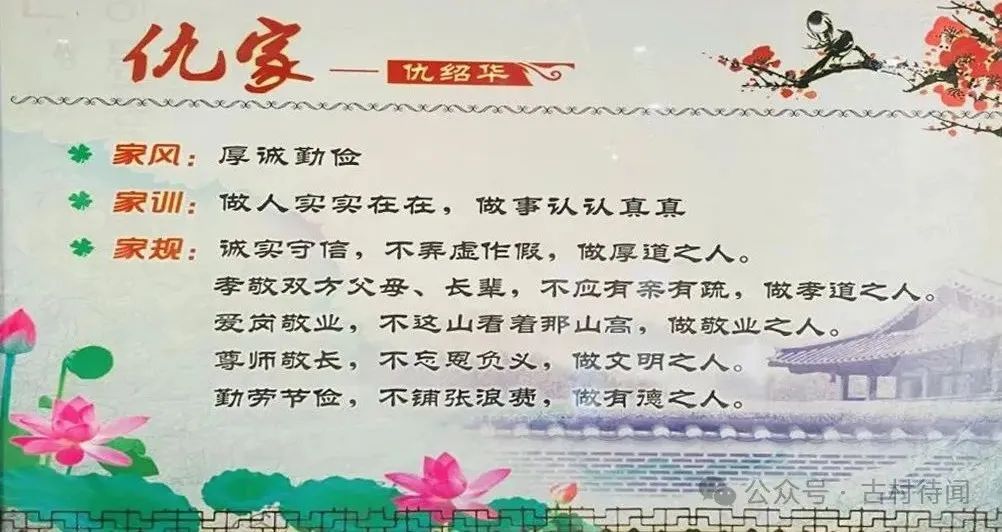 仇家——仇绍华
家风：厚诚勤俭
家训：做人实实在在，做事认认真真
家规：诚实守信，不弄虚作假，做厚道之人。
孝敬双方父母、长辈，不应有亲有疏，做孝道之人。
爱岗敬业，不这山看着那山高，做敬业之人。
尊师敬长，不忘恩负义，做文明之人。
勤劳节俭，不铺张浪费，做有德之人。
公众号·古村待闻